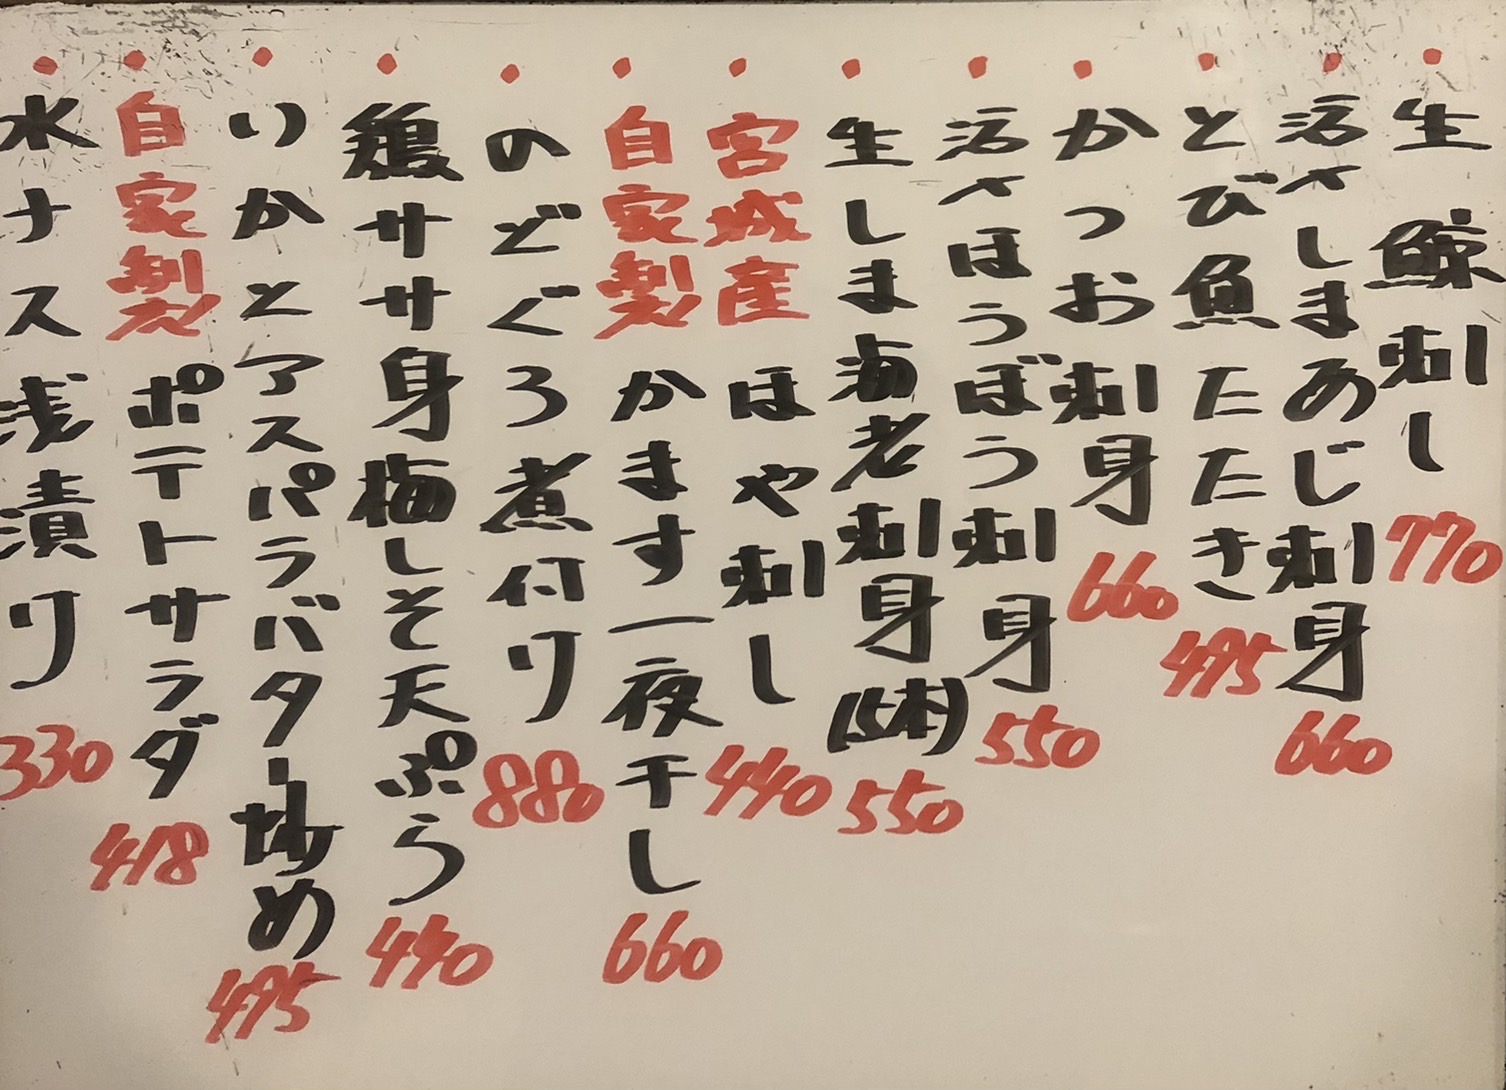 生鯨刺し 770
活〆しまあじ刺身 660
とび魚たたき 495
かつお刺身 660
活〆ほうぼう刺身 550
生しま海老刺身(5本) 550
宮城産ほや刺し 440
自家製かます一夜干し 660
のどぐろ煮付け 880
鶏ササ身梅しそ天ぷら 440
いかとアスパラバター炒め 495
自家製ポテトサラダ 418
水ナス浅漬り 330